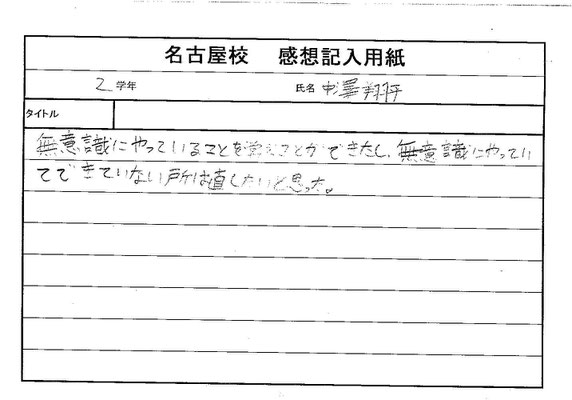 名古屋校 感想記入用紙
2 学年 氏名 中澤翔
タイトル
無意識にやっていることを覚えことができたし、無意識にやってい
てできていない所は直したいと思った。